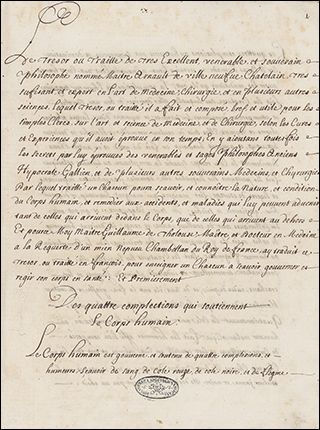 1
De Tresor ou Traitte de Tres Excellent, venerable, et souverain
Philosophe nommé Maitre Arnault de ville neufue Chatelain, tres
suffisant, et expert en l'art de Medecine, Chirurgie et en plusieurs autres
sciences, lequel Tresor, ou traitté il a fait et composé bref, et utile pour les
simples Clercs, sur l'art et science de Medecine, et de Chirurgie, selon les Cures
et Experiences qu'il avoit éprouvé en son temps. En y ajoutant toutesfois
les secrets par luy éprouvés des venerables et sages Philosophes Anciens
Hypocrate, Gallien, et de Plusieurs autres souverains Medecins, et Chyrurgiens
Par lequel traitté un Chacun pourra sçavoir, et connoitre la Nature, et condition
du Corps humain, et remedier aux accidents, et maladies qui luy peuvent advenir
tant de celles qui arrivent dedans le Corps, que de celles qui arrivent au dehors
Et pource Moy Maitre Guillaume de Tholouse Maitre et Docteur en Medecine
à la Requeste d'un mien Nepveu Chambellan du Roy de France, ay traduit ce
Tresor, ou traitté en François, pour enseigner un Chacun à sçavoir gouverner et
regir son corps en santé. Et Premierement
Des quattre complections qui soutiennent
le Corps humain.
Le Corps humain est gouverné et soutenu de quattre complections, et
humeurs, sçavoir de sang, de cole rouge, de cole noire, et de flegme